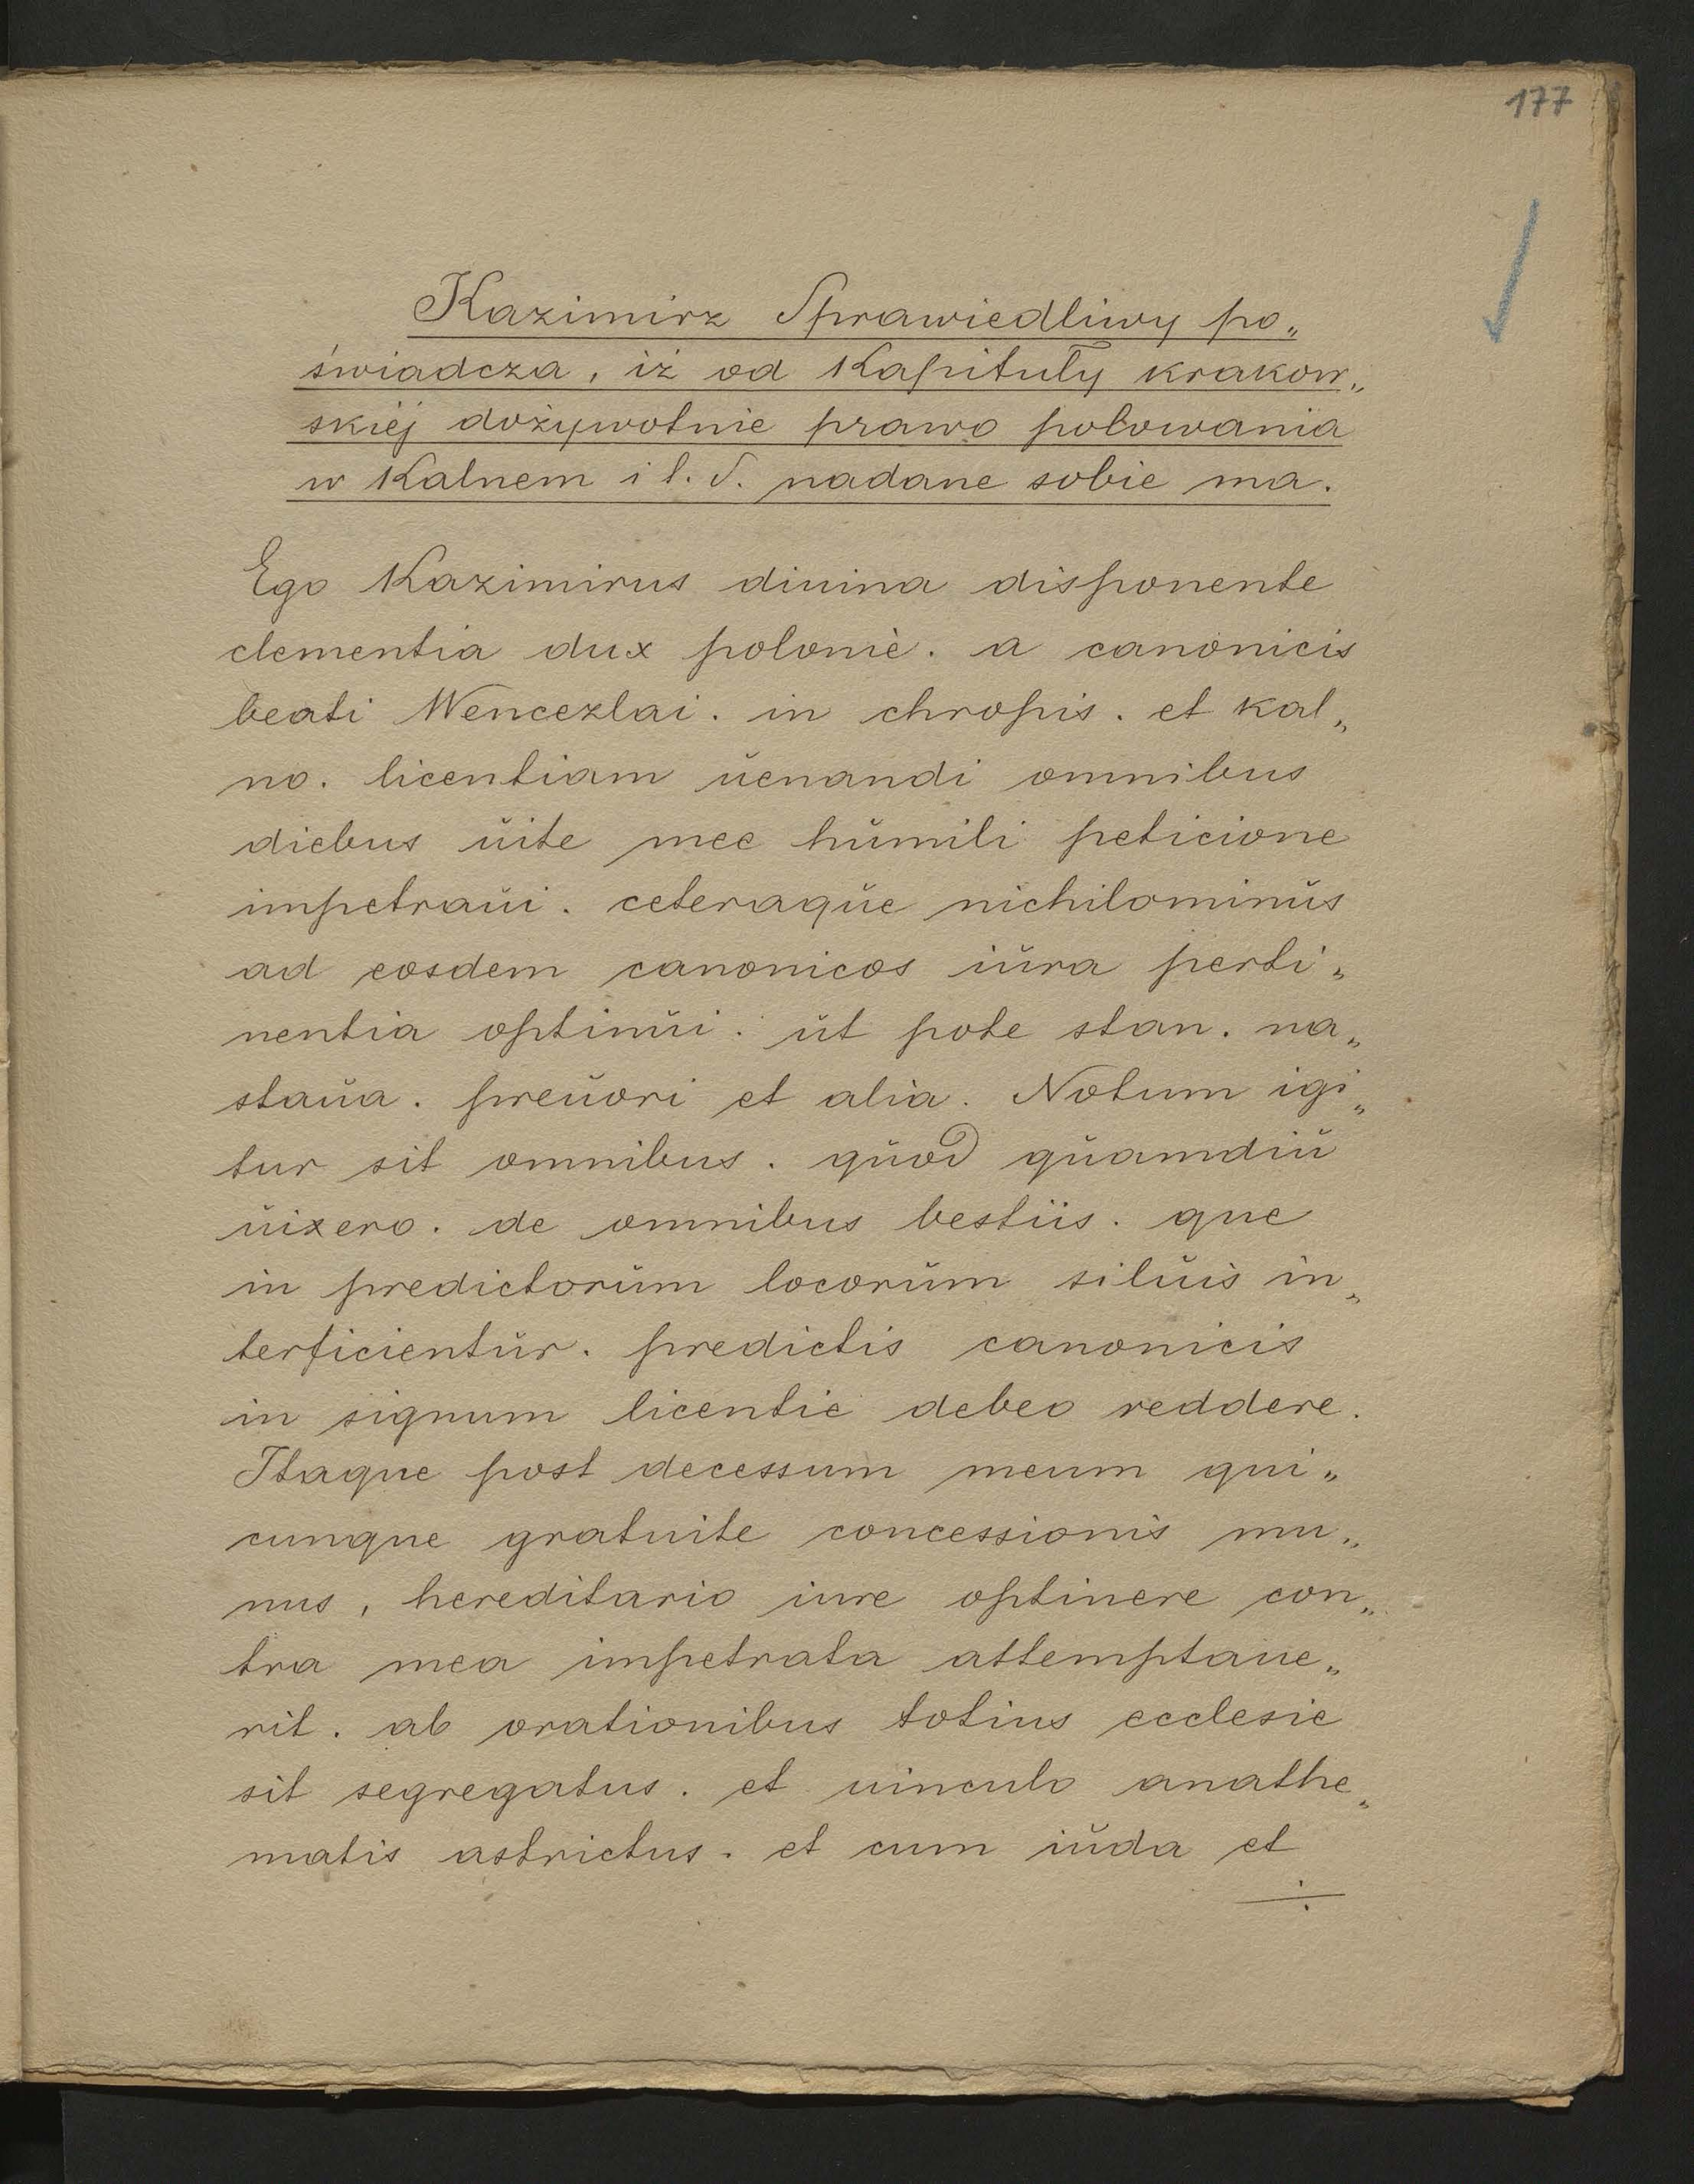 177
Kazimirz Sprawiedliwy po„
świadcza, iż od Kapituły krakow„
skiéj dożywotnie prawo polowania
w Kalnem i t. d. nadane sobie ma.
Ego Kazimirus diuina disponente
clementia dux polonie. a canonicis
beati Wencezlai. in chropis. et kal„
no. licentiam ŭenandi omnibus
diebus ŭite mee hŭmili peticione
impetraŭi. ceteraqŭe nichilominŭs
ad eosdem canonicos iŭra perti„
nentia optinŭi. ŭt pote stan. na„
staŭa. preŭori et alia. Notum igi„
tur sit omnibus. qŭod qŭamdiŭ
ŭixero. de omnibus bestiis. que
in predictorŭm locorŭm silŭis in„
terficientŭr. predictis canonicis
in signum licentie debeo reddere.
Itaque post decessum meum qui„
cunque gratuite concessionis mu„
nus, hereditario iure optinere con„
tra mea impetrata attemptaue„
rit. ab orationibus totius ecclesie
sit segregatus. et uinculo anathe„
matis astrictus. et cum iŭda et